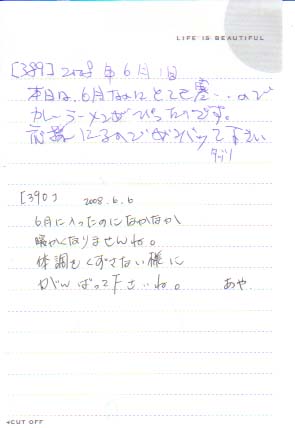 LIFE IS BEAUTIFUL
[389] 2008年6月1日
本日は、6月なのにとても寒...ので
カレーラーメンがぴったりです。
応募にるのでガンバッて下さい
[390] 2008.6.6
6月に入ったのになかなか
暖かくなりませんね。
体調をくずさない様に
がんばって下さいね。 あや
CUT OFF